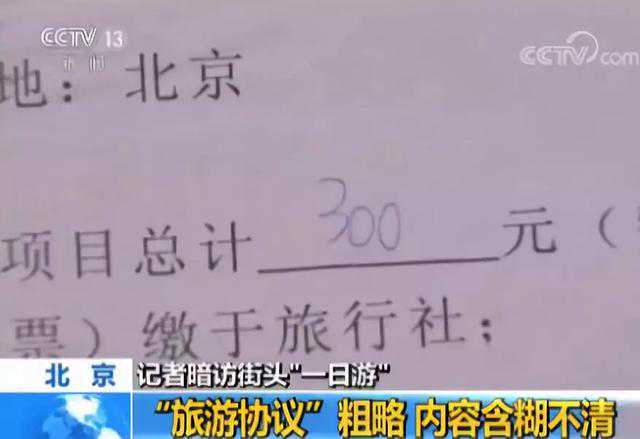 CCTV 13
新闻
CCTV.com
地：北京
项目总计300元（
票）缴于旅行社；
北京
记者暗访街头"一日游"
"旅游协议"粗略 内容含糊不清